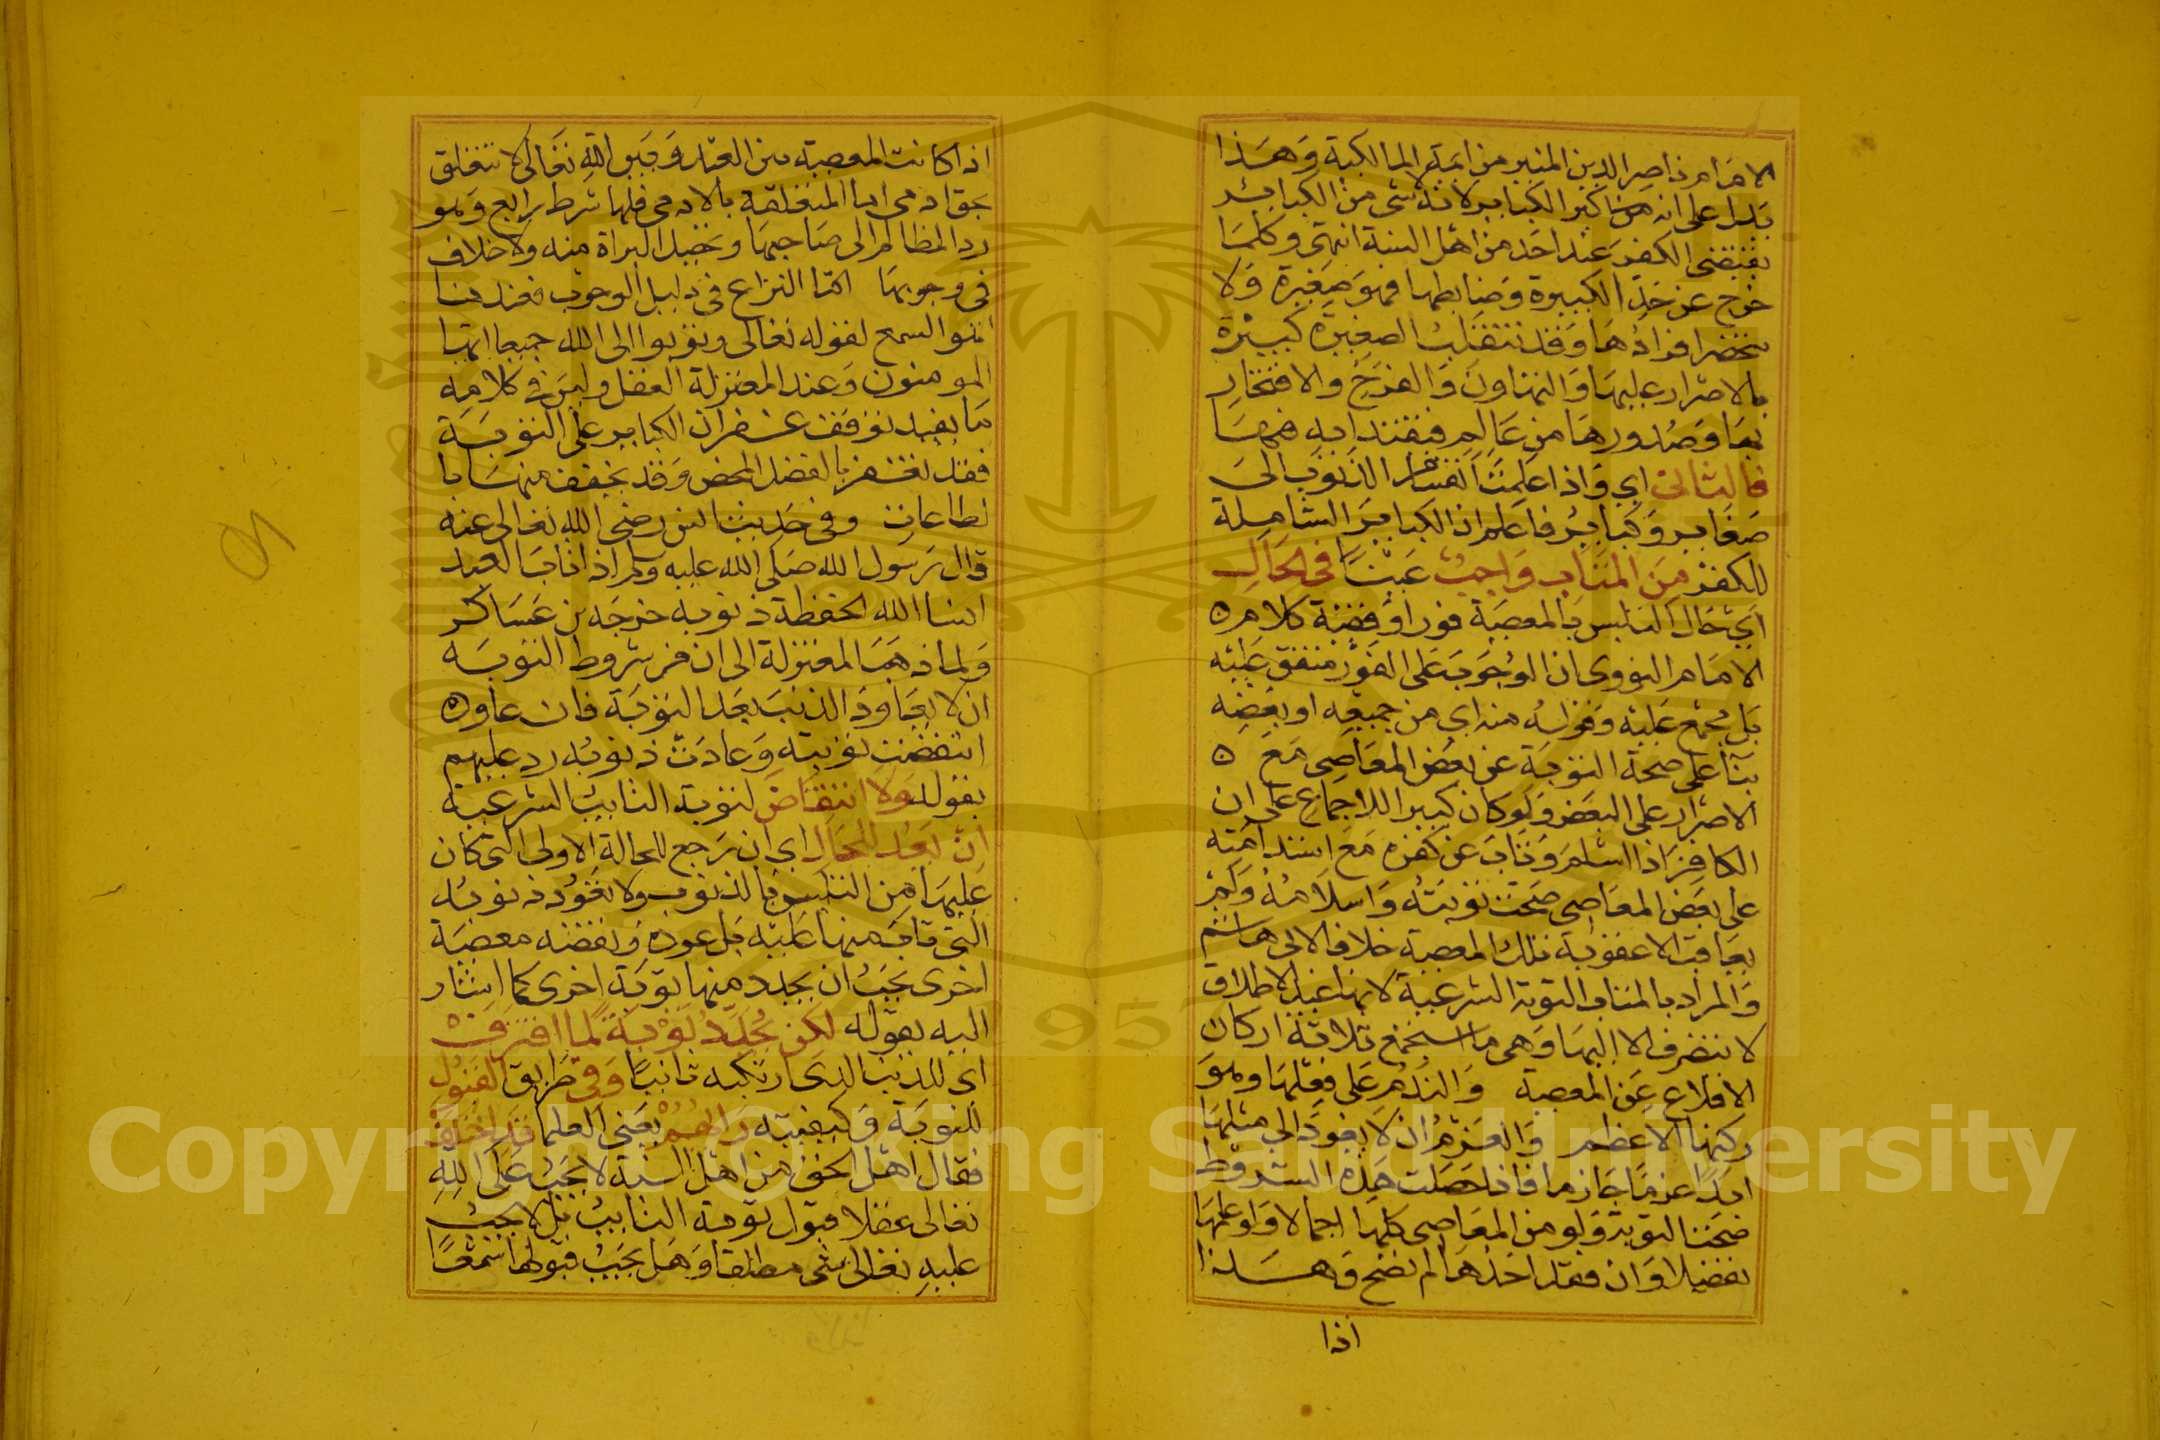 الامام ناصر الدين المنير من ايمة المالكية وهذا
يدل على انه من اكبر الكباير لانه لا شى من الكبائر
يقتضى الكفر عند احد من اهل السنة انتهى وكلما
خرج عن حد الكبيرة وضابطها فهو صغيرة ولا
تنحصر افرادها وقد تنقلب الصغيرة كبيرة
بالاصرار عليها والتهاون والفرح والافتخار
بها وصدورها من عالم فيقتدا به فيها
فالثانى اي واذا علمت انقسام الذنوب الى
صغاير وكباير فاعلم ان الكباير الشاملة
للكفر من المتاب واجب عينا فى الحال
اي حال التلبس بالمعصية فورا وقضية كلام
الامام النووى ان الوجوب على الفور متفق عليه
بل مجمع عليه وقوله منه اي من جميعه او بعضه
بناً على صحة التوبة عن بعض المعاصى مع
الاصرار على البعض ولو كان كبيرا للاجماع على ان
الكافر اذا اسلم وتاب عن كفره مع استدامته
على بعض المعاصى صحت توبته واسلامه ولم
يعاقب الا عقوبة تلك المعصية خلافا لابى هاشم
والمراد بالمتاب التوبة الشرعية لانها عند الاطلاق
لا تنصرف الا اليها وهى ما استجمع ثلاثة اركان
الاقلاع عن المعصية والندم على فعلها وهو
ركنها الاعظم والعزم ان لا يعود الى مثلها
ابدا عزما جازما فاذا حصلت هذه الشروط
صحت التوبة ولو من المعاصى كلها اجمالا ولو علمها
تفصيلا وان فقد احدها لم تصح وهذا
اذا
اذا كانت المعصية بين العبد وبين الله تعالى لا تتعلق
بحق ادمى اما المتعلقة بالادمى فلها شرط رابع وهو
رد المظالم الى صاحبها وتحصيل البراة منه ولا خلاف
فى وجوبها انما النزاع فى دليل الوجوب فعندنا
هو السمع لقوله تعالى وتوبوا الى الله جميعا ايها
المومنون وعند المعتزلة العقل وليس فى كلامه
ما يفيد توقف غفران الكباير على التوبة
فقد تغفر بالفضل المحض وقد يخفف منها با
لطاعات وفى حديث انس رضى الله تعالى عنه
قال رسول الله صلى الله عليه وسلم اذا تاب العبد
انسا الله الحفظة ذنوبه خرجه بن عساكر
ولما ذهب المعتزلة الى ان من شروط التوبة
ان لا يعاود الذنب بعد التوبة فان عاوده
انتقضت توبته وعادت ذنوبه رد عليهم
بقوله ولا انتقاض لتوبة التايب الشرعية
ان يعد للحال اي ان رجع للحالة الاولى التى كان
عليها من التلبس بالذنوب ولا تعود ذنوبه
التى تاب منها عليه بل عوده ونقضه معصية
اخرى يجب ان يجدد منها توبة اخرى كما اشار
اليه بقوله لكن يجدد توبة لما اقترف
اى للذنب الذى ارتكبه ثانيا وفى طريق القبول
للتوبة وكيفيته رايهم يعنى العلما قد اختلف
فقال اهل الحق من اهل السنة لا يجب على الله
تعالى عقلا قبول توبة التايب بل لا يجب
عليه تعالى شى مطلقا وهل يجب قبولها سمعا
Copyright © King Saud University
1957